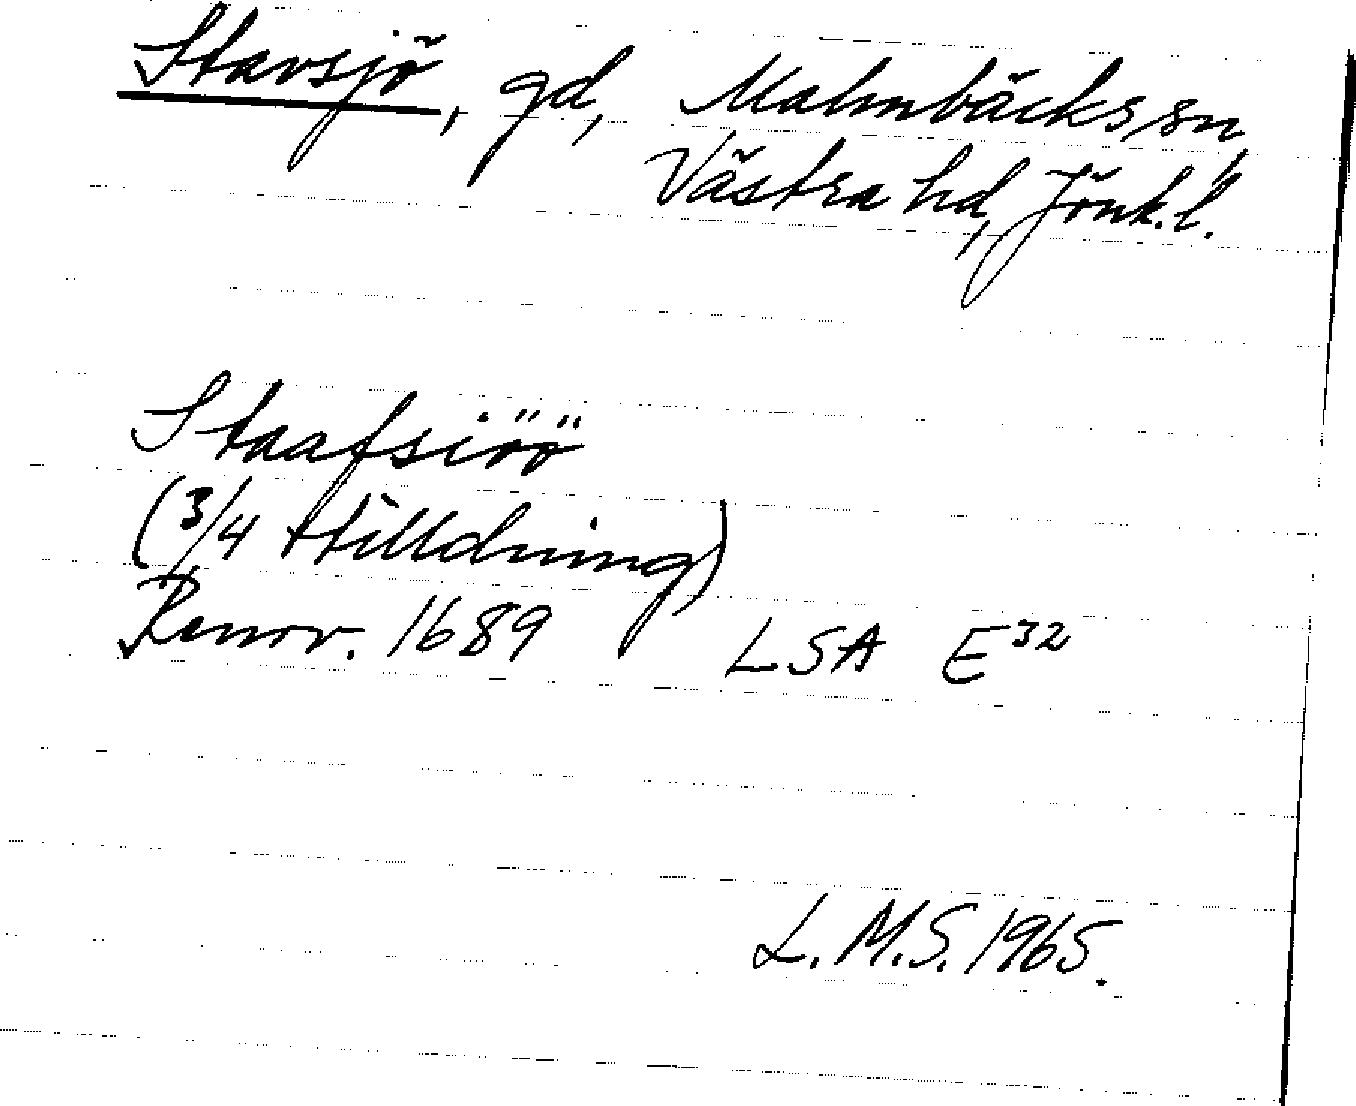 Stavsjö, gd, Malmbäcks sn,
Västra hd, Jönk. l.
Staafsiöö
(3/4 tilldning)
Renov. 1689 LSA E32
L.M.S. 1965.